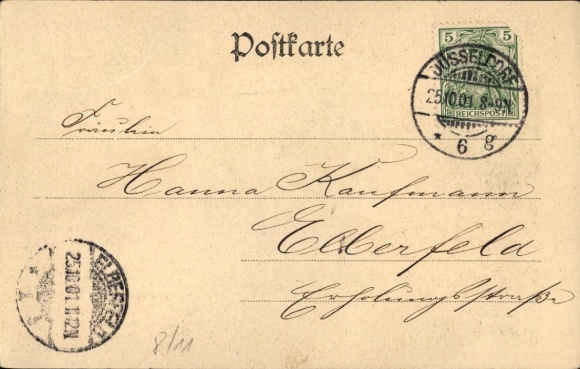 Postkarte
5 5
REICHSPOST
DÜSSELDORF
25.10.01 8-9N
* 6 g
Fräulein
Hanna Kaufmann
Elberfeld
Erholungsstraße
ELBERFELD
25.10.01.11-12N
* 1
8/11